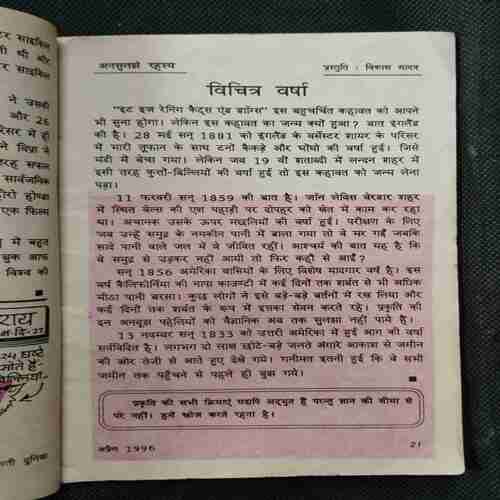 टर साइकिल
टर साइकिल
ने उसकी
और 26
ने विप्रा ने
तरह सफल
सार्वजनिक
एक फिल्म
में बहुत
बुक आफ
विश्व की
राय
24 घण्टे
अनसुलझे रहस्य
प्रस्तुति : विकास यादव
विचित्र वर्षा
"इट इज रेनिंग कैट्स एंड डॉग्स" इस बहुचर्चित कहावत को आपने
भी सुना होगा। लेकिन इस कहावत का जन्म क्यों हुआ? बात इंगलैंड
की है। 28 मई सन् 1881 को इंगलैंड के वर्सेस्टर शायर के परिसर
में भारी तूफान के साथ टनों कैकड़े और घोंघो की वर्षा हुई। जिसे
मंडी में बेचा गया। लेकिन जब 19 वीं शताब्दी में लन्दन शहर में
इसी तरह कुत्तों-बिल्लियों की वर्षा हुई तो इस कहावत को जन्म लेना
पड़ा।
11 फरवरी सन् 1859 की बात है। जॉन लेविस बेरडार शहर
में स्थित वेल्स की एक पहाड़ी पर दोपहर को खेत में काम कर रहा
था। अचानक उसके ऊपर मछलियों की वर्षा हुई। परीक्षण के लिए
जब उन्हें समुद्र के नमकीन पानी में डाला गया तो वे मर गईं जबकि
सादे पानी वाले जल में वे जीवित रहीं। आश्चर्य की बात यह है कि
वे समुद्र से उड़कर नहीं आयी तो फिर कहाँ से आईं?
सन् 1856 अमेरिका वासियों के लिए विशेष यादगार वर्ष है। इस
वर्ष कैलिफोर्निया की नापा काउन्टी में कई दिनों तक शर्बत से भी अधिक
मीठा पानी बरसा। कुछ लोगों ने इसे बड़े-बड़े बर्तनों में रख लिया और
कई दिनों तक शर्बत के रूप में इसका सेवन करते रहे। प्रकृति की
इन अनबूझ पहेलियों को वैज्ञानिक अब तक सुलझा नहीं पाये हैं।
13 नवम्बर सन् 1833 को उत्तरी अमेरिका में हुई आग की वर्षा
सर्वविदित है। लगभग दो लाख छोटे-बड़े जलते अंगारे आकाश से जमीन
की ओर तेजी से आते हुए देखे गये। गनीमत इतनी हुई कि वे सभी
जमीन तक पहुँचने से पहले ही बुझ गये।
प्रकृति की सभी क्रियाएं यद्यपि अद्भुत हैं परन्तु ज्ञान की सीमा से
परे नहीं। हमें खोज करते रहना है।
अप्रैल 1996
21